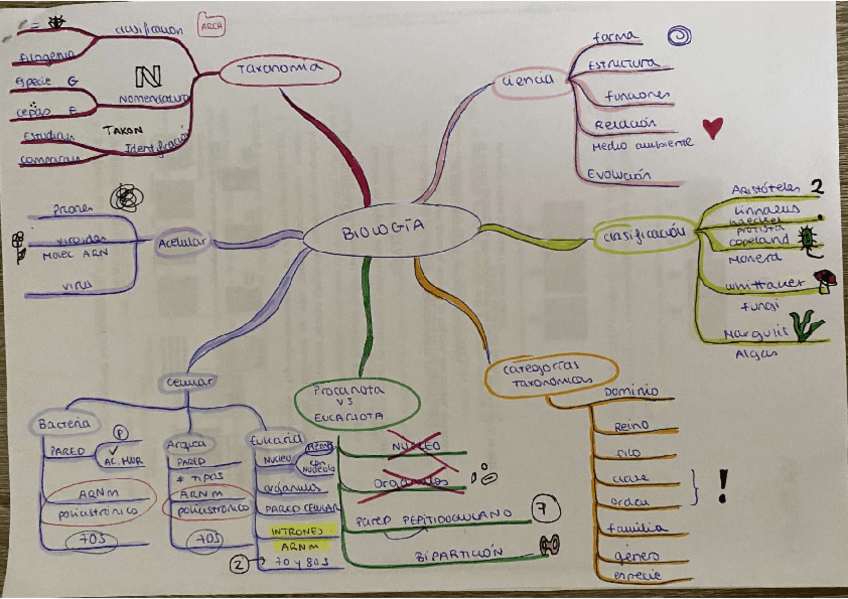 BIOLOGÍA
Taxonomía
clasificación
ARCH
Filogenia
N
Nomenclatura
Especie G
cepas E
TAXON
Identificación
Estudian
comparan
ciencia
Forma
Estructura
Funciones
Relación
Medio ambiente
Evolución
clasificación
Aristóteles 2
Linnaeus
Haeckel
Protista
copeland
Monera
Whittaker
Fungi
Margulis
Algas
categorías
taxonómicas
Dominio
Reino
Filo
clase
orden
!
familia
género
especie
Procariota
VS
EUCARIOTA
NÚCLEO
Orgánulos
Pared PEPTIDOGLUCANO
7
BIPARTICIÓN
Acelular
Priones
viroides
Molec ARN
virus
celular
Bacteria
P
PARED
AC. MUR
ARNm
policistrónico
70S
Arquea
PARED
≠ TIPOS
ARNm
policistrónico
70S
Eukaria
Núcleo
con
Nucleolo
orgánulos
PARED CELULAR
INTRONES
ARNm
2
70 y 80S